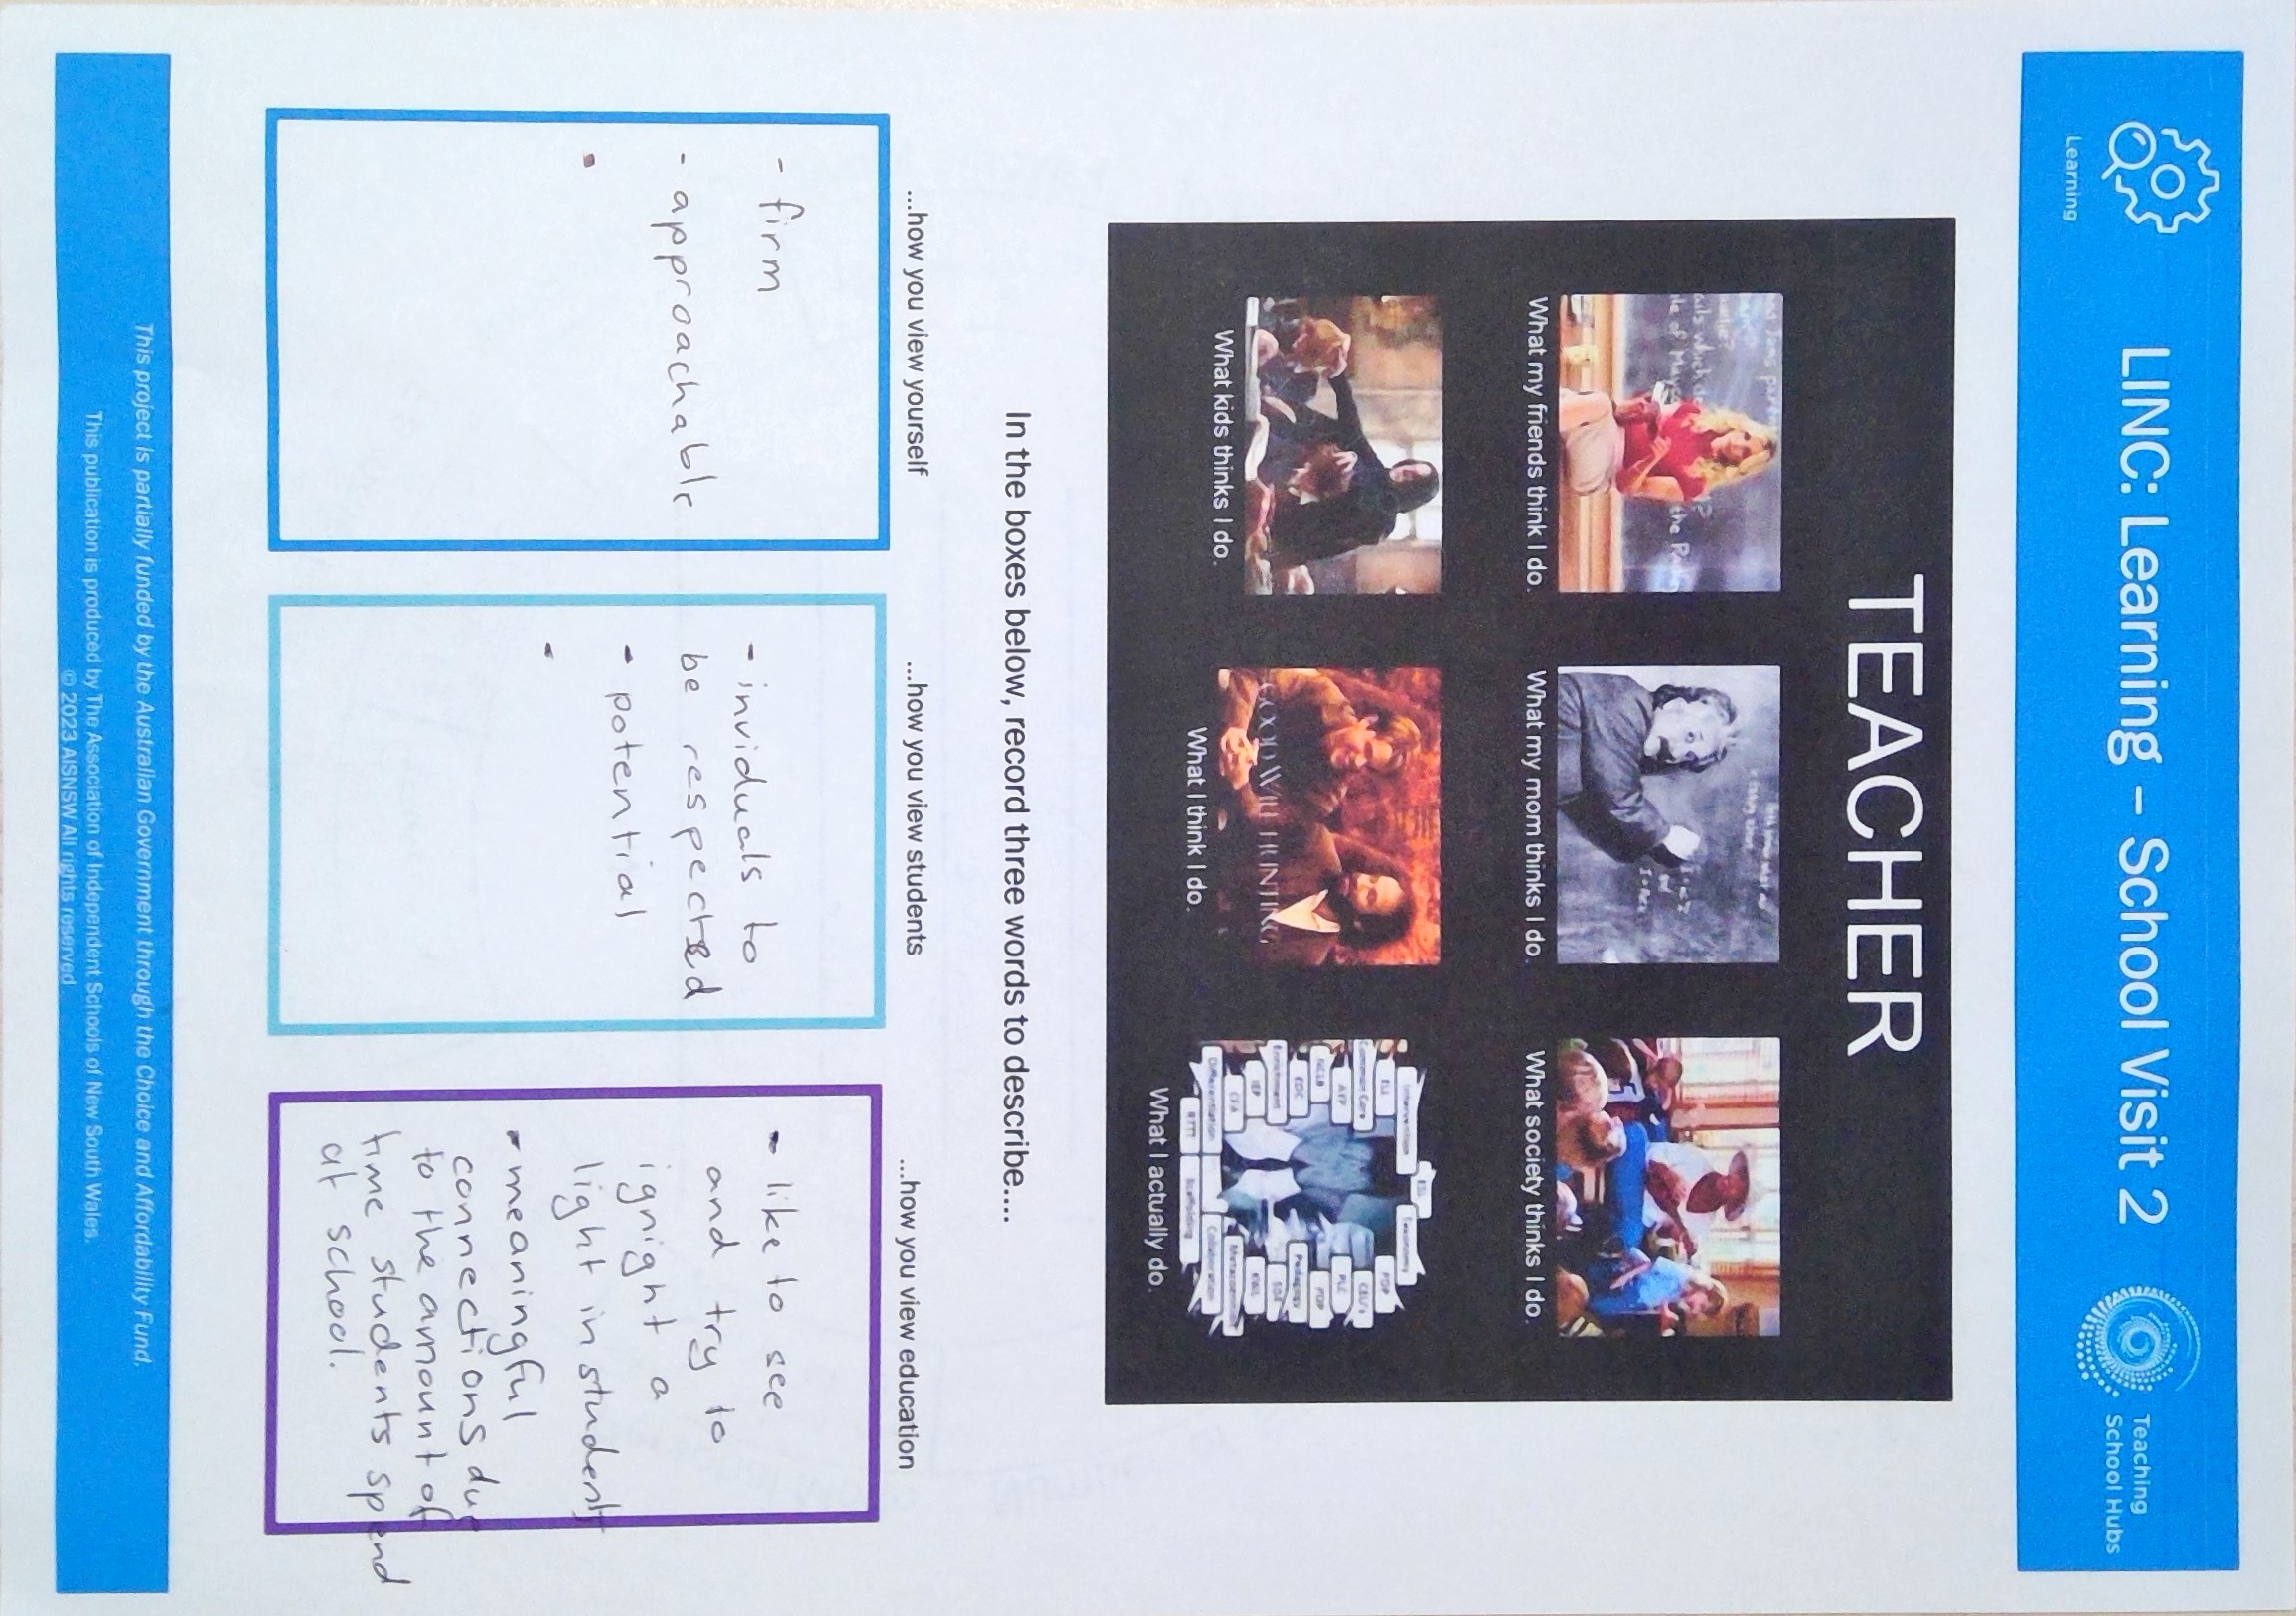 LINC: Learning – School Visit 2
Learning
Teaching
School Hubs
TEACHER
What my friends think I do.
What my mom thinks I do.
What society thinks I do.
GOOD WILL HUNTING
Intervention
Taxonomy
ELL
PDP
Common Core
CEU's
AYP
PLC
NCLB
PDP
EOC
Pedagogy
Enrichment
504
IEP
KWL
CFA
Differentiation
Collaboration
RTTT
Scaffolding
What kids thinks I do.
What I think I do.
What I actually do.
In the boxes below, record three words to describe....
...how you view yourself
- firm
- approachable
-
...how you view students
- inviduals to
be respected
- potential
-
...how you view education
- like to see
and try to
ignight a
light in students
- meaningful
connections due
to the amount of
time students spend
at school.
This project is partially funded by the Australian Government through the Choice and Affordability Fund.
This publication is produced by The Association of Independent Schools of New South Wales.
© 2023 AISNSW All rights reserved